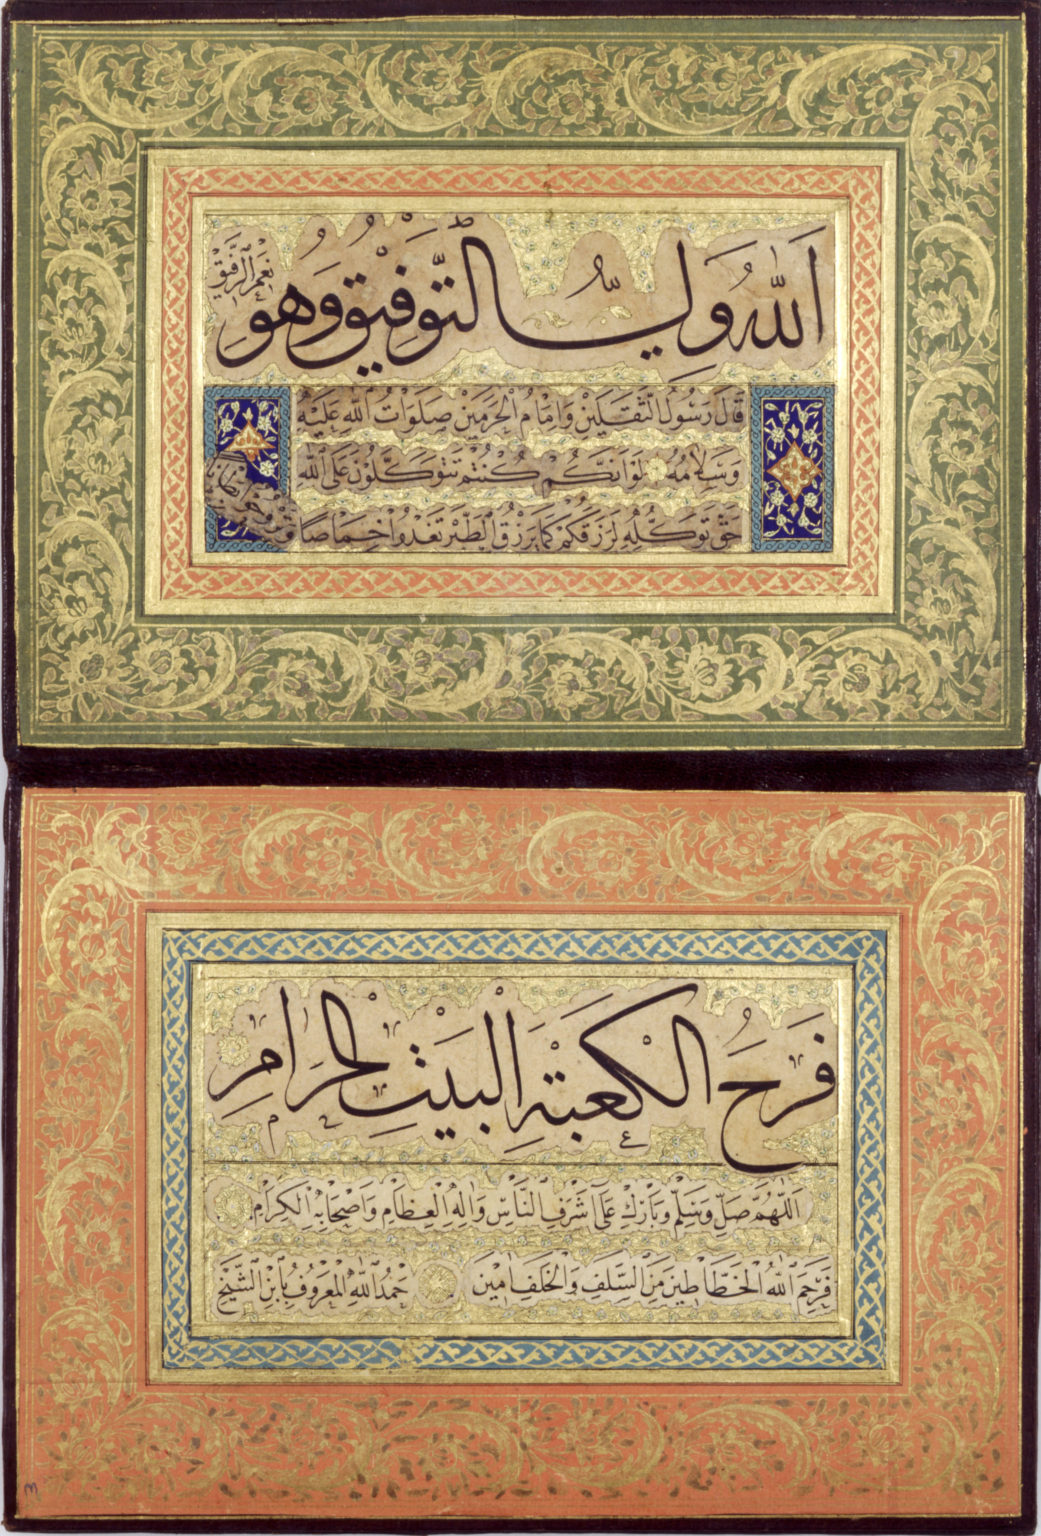 الله ولي التوفيق وهو نعم الرفيق
قال رسول الثقلين وامام الحرمين صلوات الله عليه
وسلامه لو انكم كنتم تتوكلون على الله
حق توكله لرزقكم كما يرزق الطير تغدوا خماصا وتروح بطانا
فرح الكعبة البيت الحرام
اللهم صل وسلم وبارك على اشرف الناس واله العظام واصحابه الكرام
فرحم الله الخطاطين من السلف والخلف امين حمد الله المعروف بابن الشيخ
٣